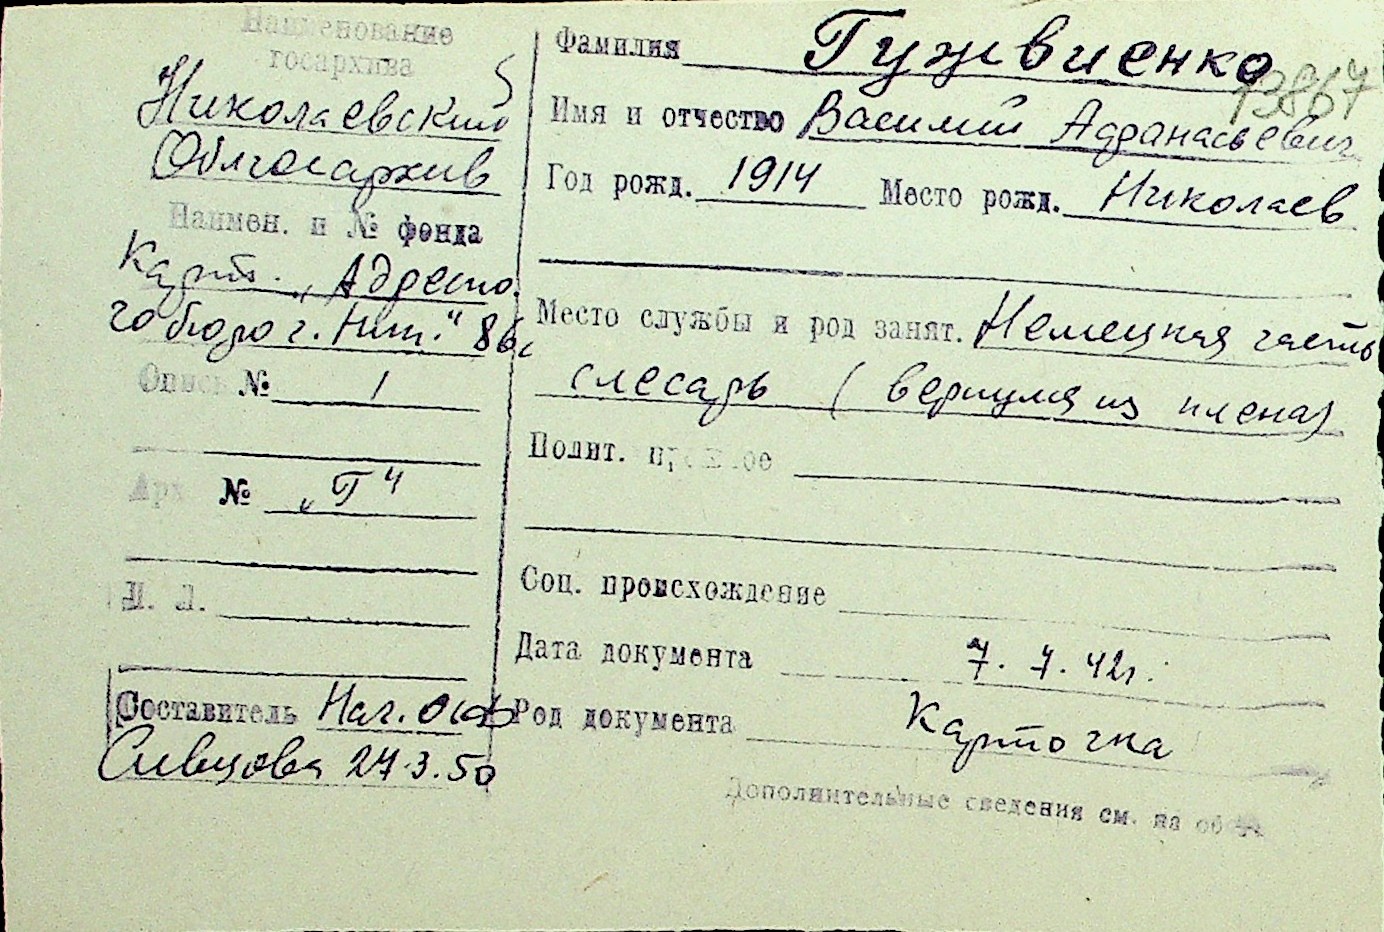 Наименование
госархива
Николаевский
Облгосархив
Наимен. и № фонда
Карт. „Адресно
го бюро г. Ник." 86с
Опись № 1
Арх №  „Г"
К. Л.
Составитель Нач. ОСФ
Сивцова 27.3.50
Фамилия Гуживиенко
13867
Имя и отчество Василий Афанасьевич
Год рожд. 1914 Место рожд. Николаев
Место службы и род занят. Немецкая часть
слесарь (вернулся из плена)
Полит. прошлое
Соц. происхождение
Дата документа 7.7.42г.
Род документа Карточка
Дополнительные сведения см. на об